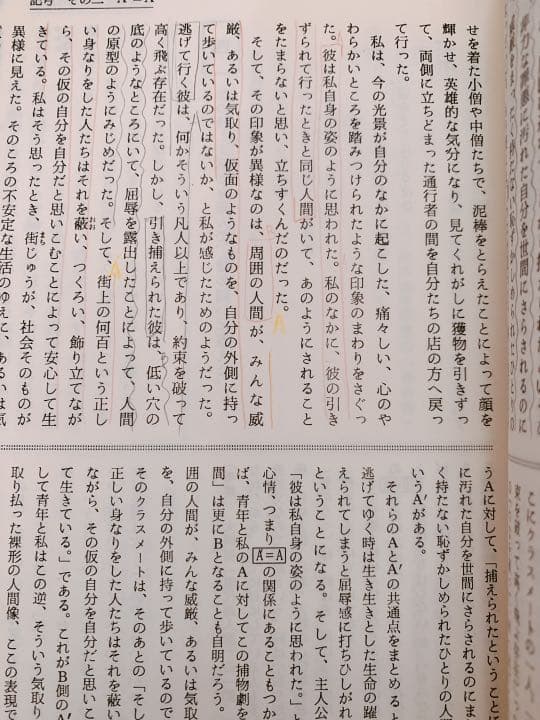 記号 その二 A＝A′
せを着た小僧や中僧たちで、泥棒をとらえたことによって顔を
輝かせ、英雄的な気分になり、見てくれがしに獲物を引きずっ
て、両側に立ちどまった通行者の間を自分たちの店の方へ戻っ
て行った。
私は、今の光景が自分のなかに起こした、痛々しい、心のや
わらかいところを踏みつけられたような印象のまわりをさぐっ
た。彼は私自身の姿のように思われた。私のなかに、彼の引き
ずられて行ったときと同じ人間がいて、あのようにされること
をたまらないと思い、立ちすくんだのだった。
A
そして、その印象が異様なのは、周囲の人間が、みんな威
厳、あるいは気取り、仮面のようなものを、自分の外側に持っ
て歩いているのではないか、と私が感じたためのようだった。
逃げて行く彼は、何かそういう凡人以上であり、約束を破って
高く飛ぶ存在だった。しかし、引き捕えられた彼は、低い穴の
底のようなところにいて、屈辱を露出したことによって、人間
の原型のようにみじめだった。そして、街上の何百という正し
A
い身なりをした人たちはそれを蔽い、つくろい、飾り立てなが
おお
ら、その仮の自分を自分だと思いこむことによって安心して生
きている。私はそう思ったとき、街じゅうが、社会そのものが
異様に見えた。そのころの不安定な生活のゆえに、あるいは気
うAに対して、「捕えられたということに
に汚れた自分を世間にさらされるのにま
く持たない恥ずかしめられたひとりの人間
いうA′がある。
それらのAとA′の共通点をまとめると
逃げてゆく時は生き生きとした生命の躍
えられてしまうと屈辱感に打ちひしがれ
ということになる。そして、主人公
「彼は私自身の姿のように思われた。」と
心情、つまりA′＝Aの関係にあることもつか
ば、青年と私のAに対してこの捕物劇を
間」は更にBとなることも自明だろう。
囲の人間が、みんな威厳、あるいは気取
を、自分の外側に持って歩いているので
そのクラスメートは、そのあとの「そし
正しい身なりをした人たちはそれを蔽い
ながら、その仮の自分を自分だと思いこ
て生きている。」である。これがB側のA′
して青年と私はこの逆、そういう気取り
取り払った裸形の人間像、ここの表現で